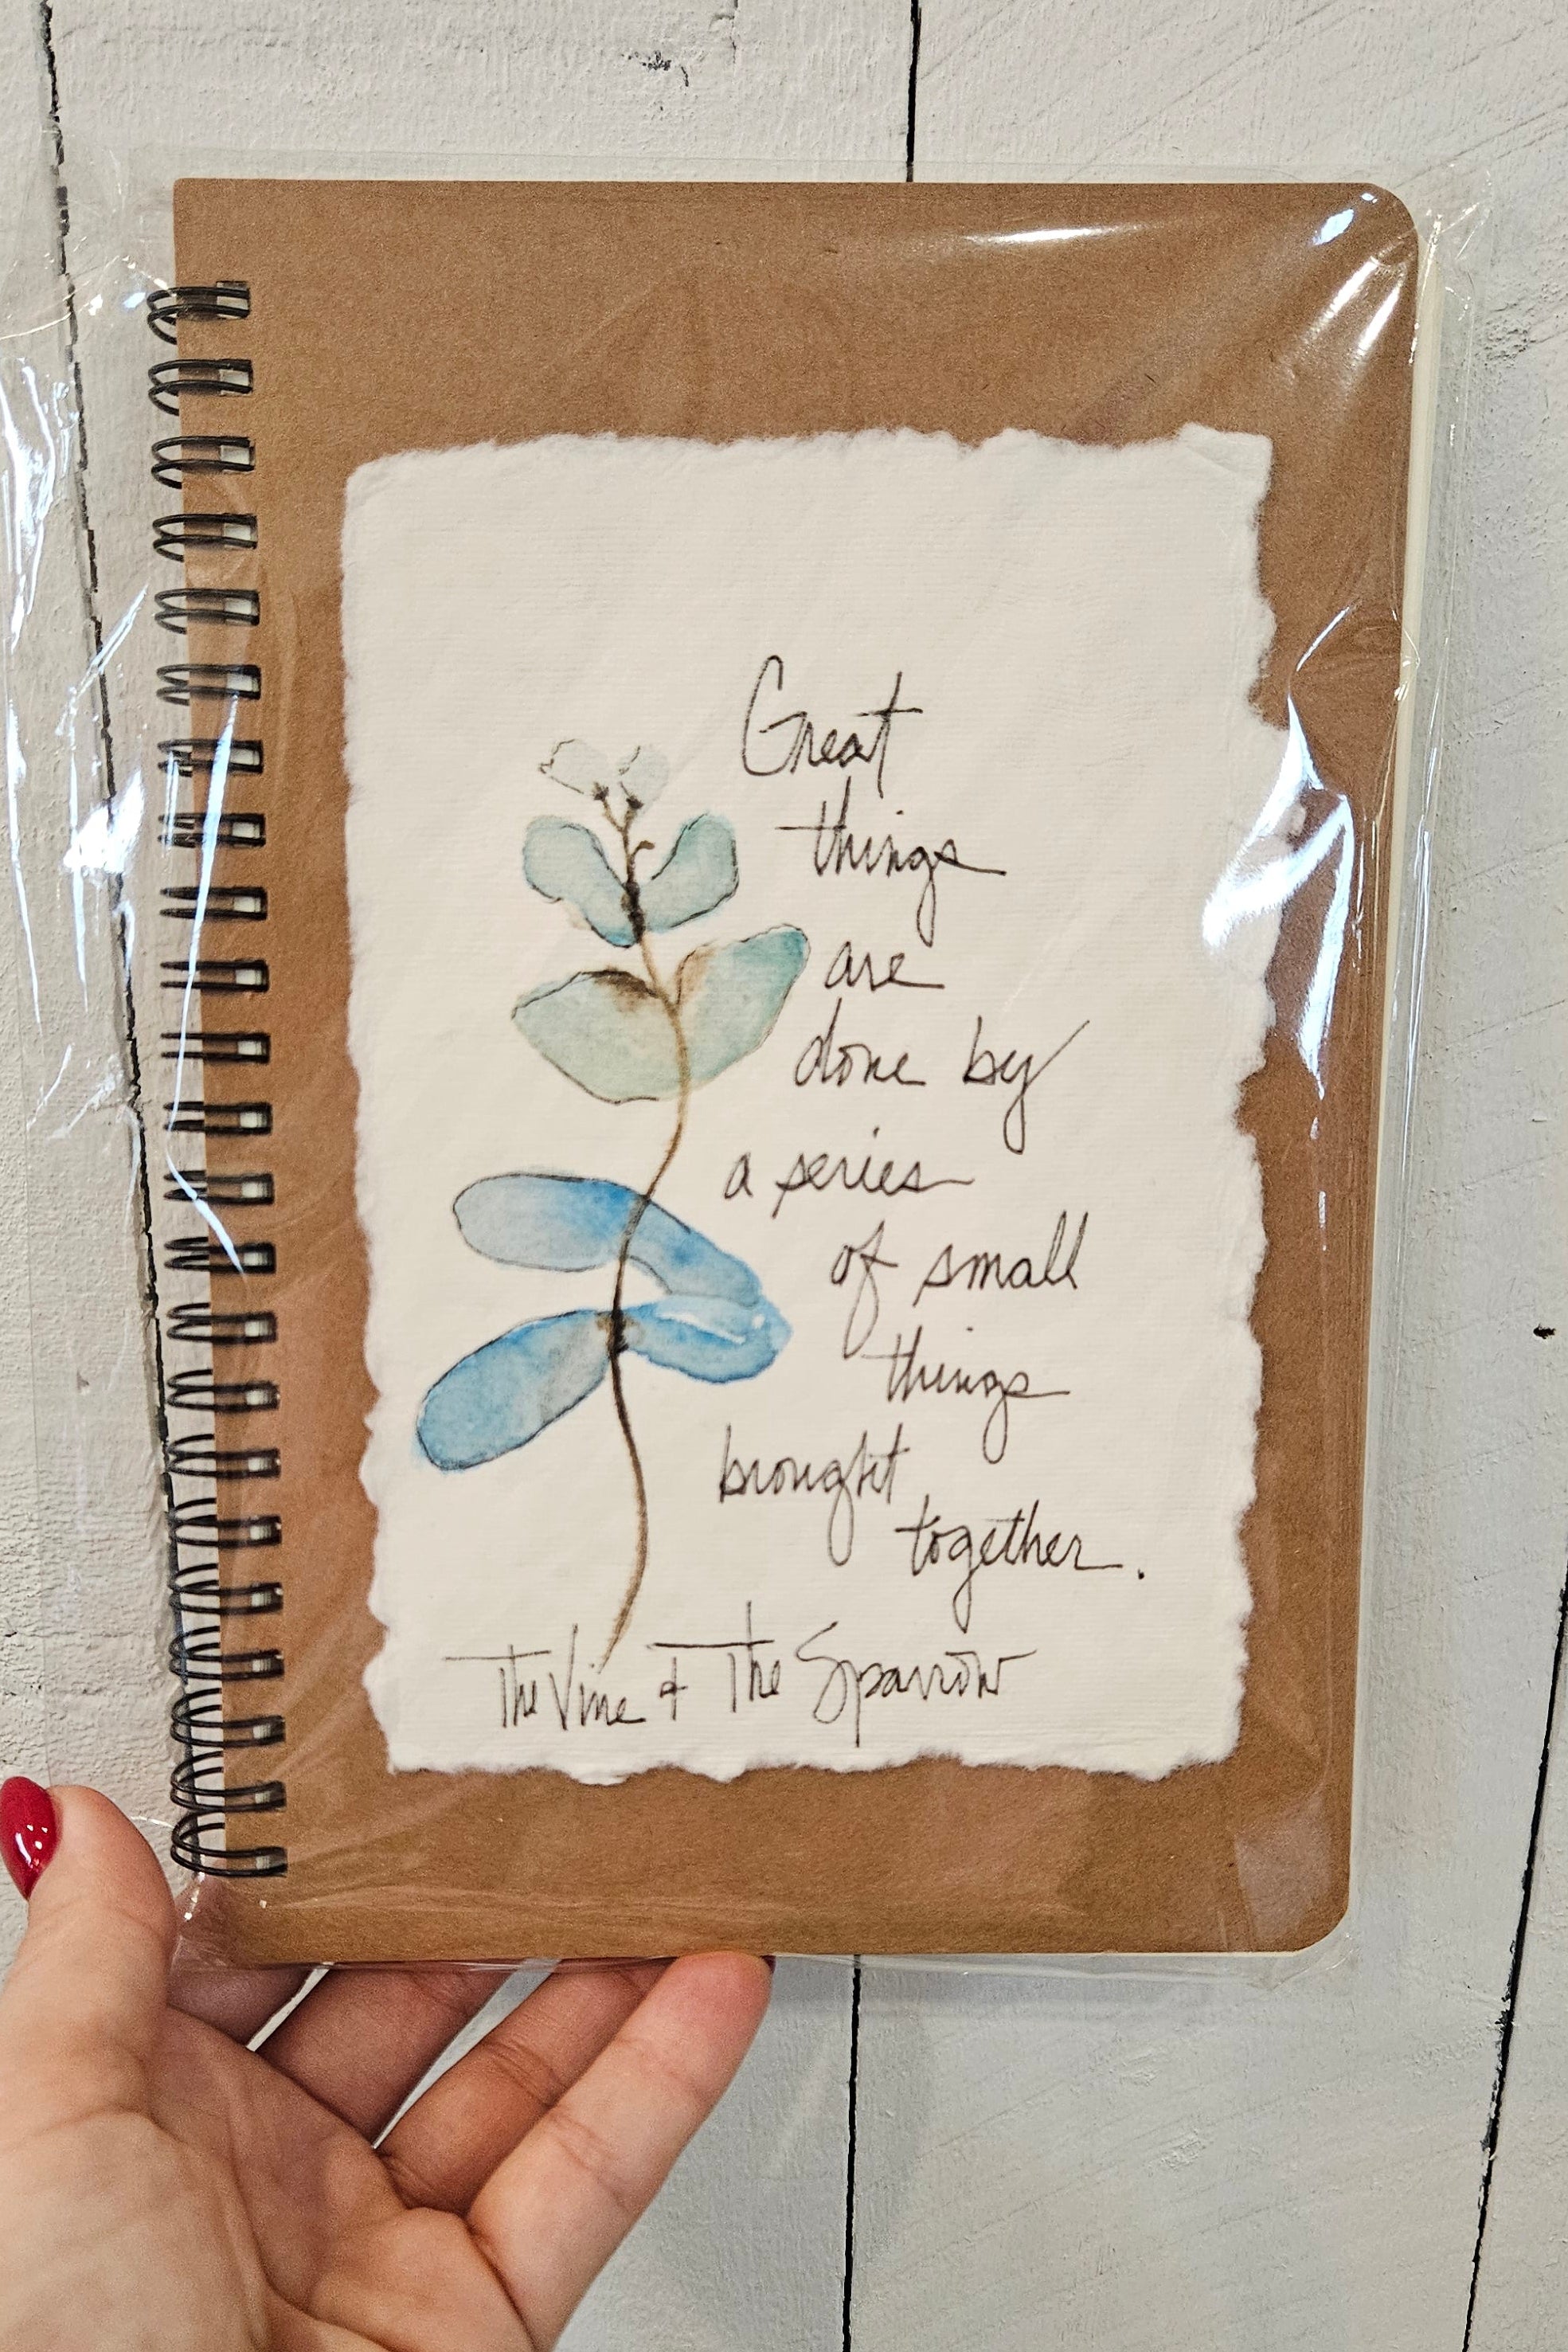 Great
things
are
done by
a series
of small
things
brought
together.
The Vine + The Sparrow